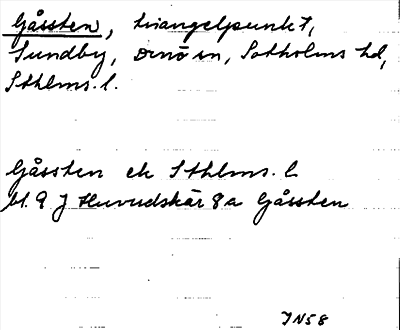 Gåssten, triangelpunkt,
Sundby, Ornö sn, Sotholms hd,
Sthlms. l.
Gåssten ek Sthlms. l
bl. 9 J Huvudskär 8 a Gåssten
JN58